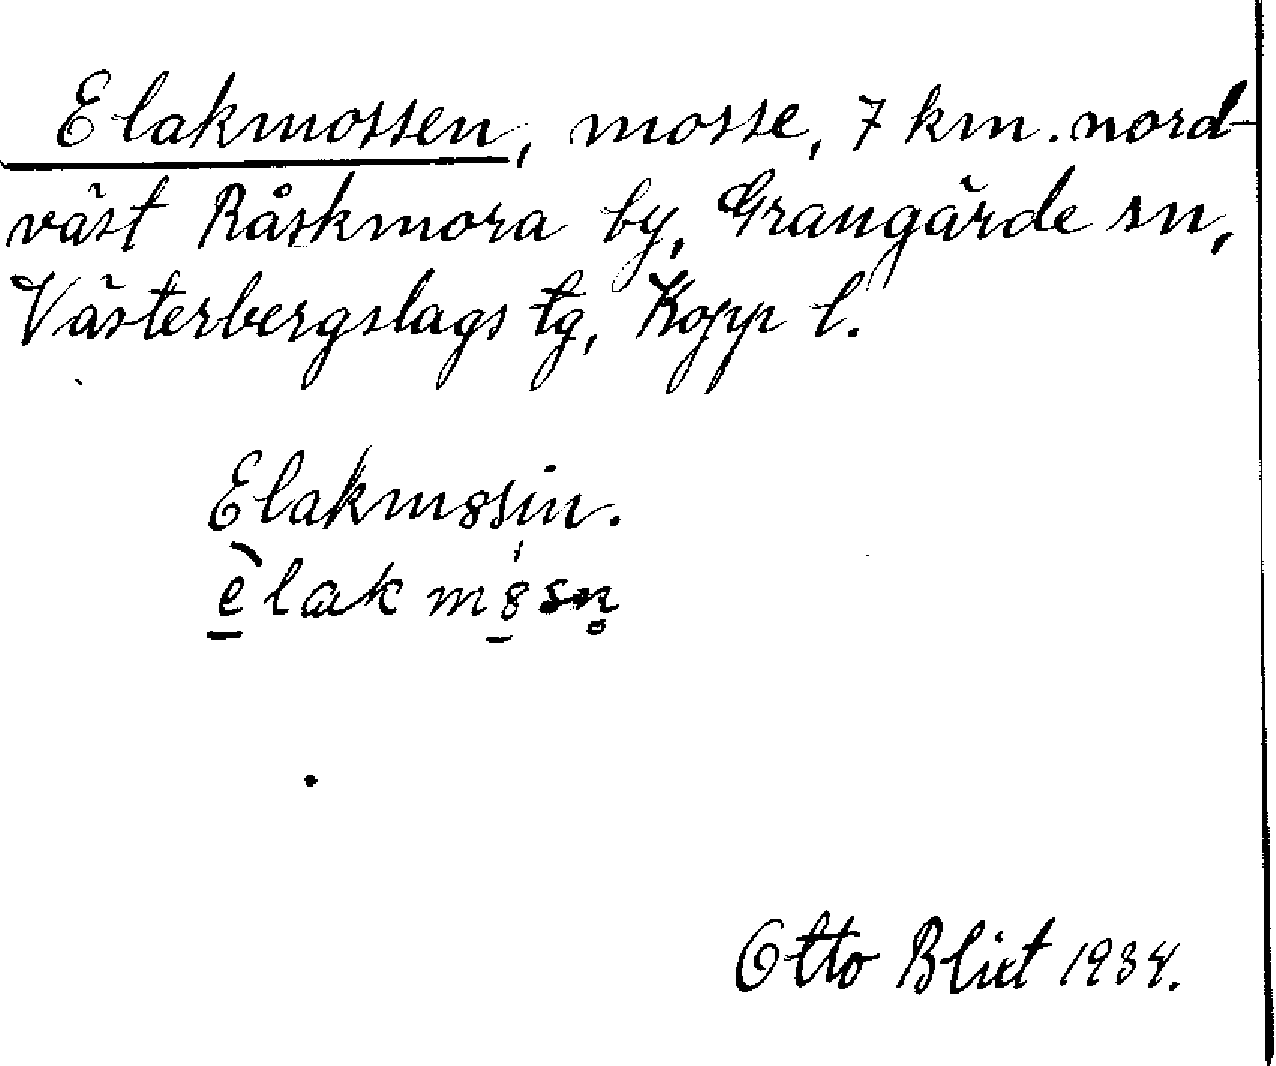 Elakmossen, mosse, 7 km. nord-
väst Råskmora by, Grangärde sn,
Västerbergslags tg, Kopp l.
Elakm8sin.
èlakm8sn̥
Otto Blixt 1934.